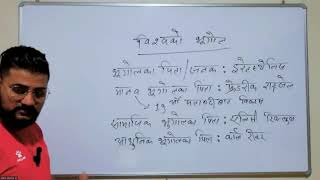 विश्वको भूगोल
भूगोलका पिता/जनक : इरेटोस्थेनिज
मानव भूगोलका पिता : फ्रेडरिक राट्जेल
१९ औं शताब्दीबाट विकास
सामाजिक भूगोलका पिता :
आधुनिक भूगोलका पिता : कार्ल